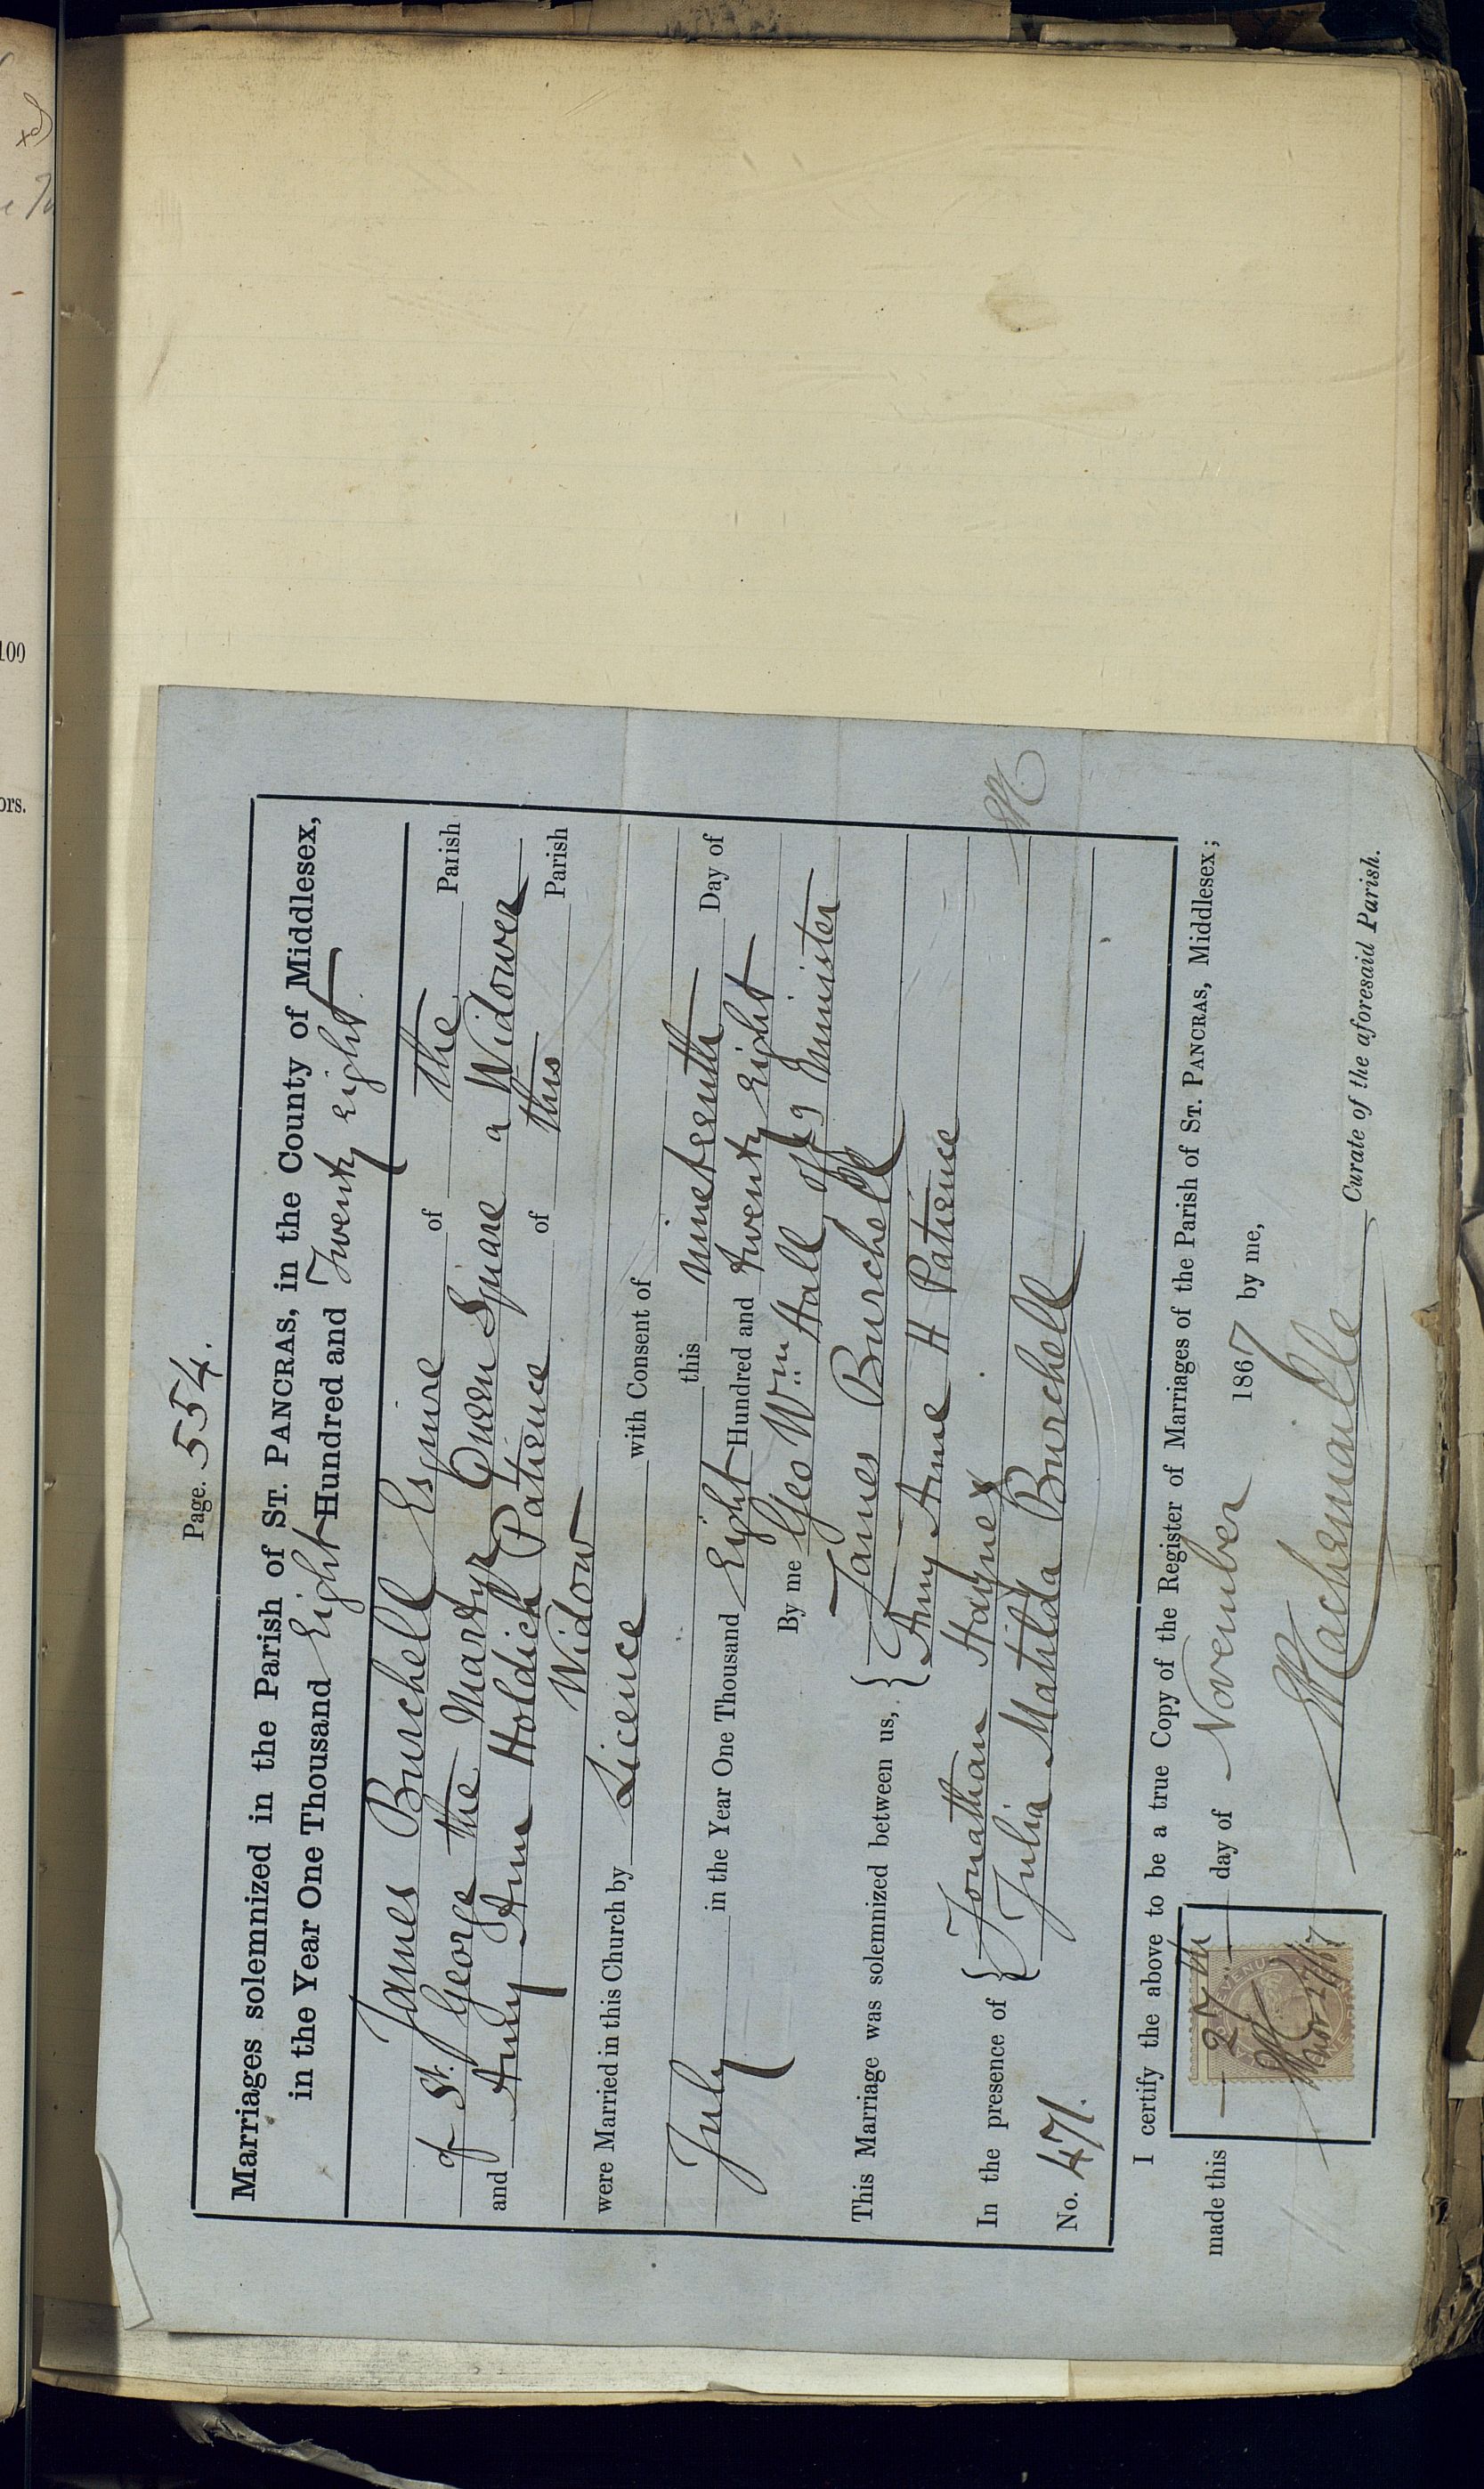 Page. 554.
Marriages solemnized in the Parish of ST. PANCRAS, in the County of Middlesex,
in the Year One Thousand Eight Hundred and Twenty Eight
James Burchell Esquire of the Parish
of St. George the Martyr Queen Square a Widower
and Amy Anne Holdich Patience of this Parish
Widow
were Married in this Church by Licence with Consent of
this nineteenth Day of
July in the Year One Thousand Eight Hundred and twenty Eight
By me Geo Wm Hall offg Minister
This Marriage was solemnized between us, { James Burchell
Amy Anne H Patience
In the presence of { Jonathan Haynes
Julia Matilda Burchell
No. 471.
I certify the above to be a true Copy of the Register of Marriages of the Parish of ST. PANCRAS, Middlesex;
made this 27th day of November 1867 by me,
Nov 27/67
Curate of the aforesaid Parish.
100
ors.